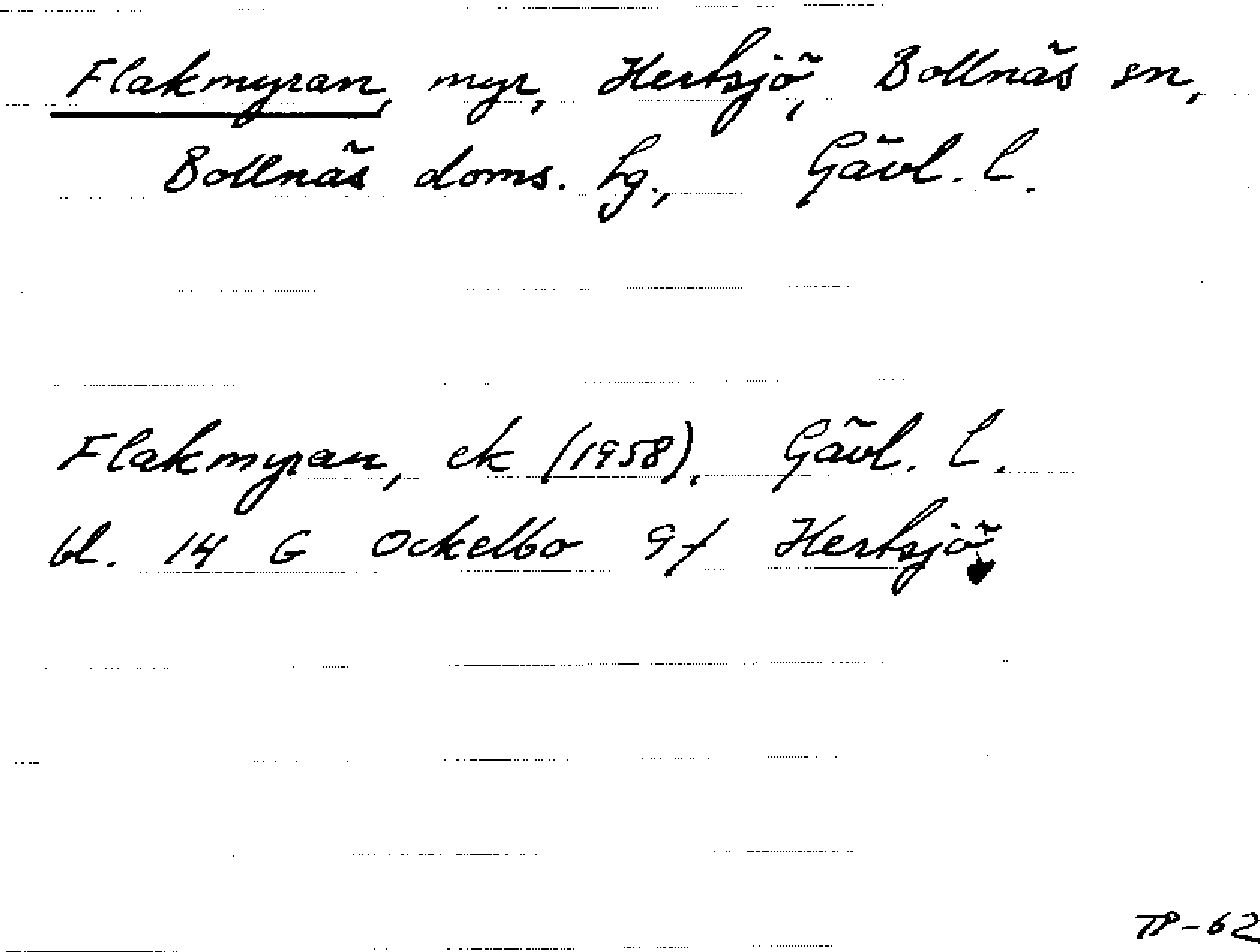 Flakmyran, myr, Hertsjö, Bollnäs sn,
Bollnäs doms. hg., Gävl. l.
Flakmyran, ek (1958), Gävl. l.
bl. 14 G Ockelbo 9f Hertsjö
TP-62